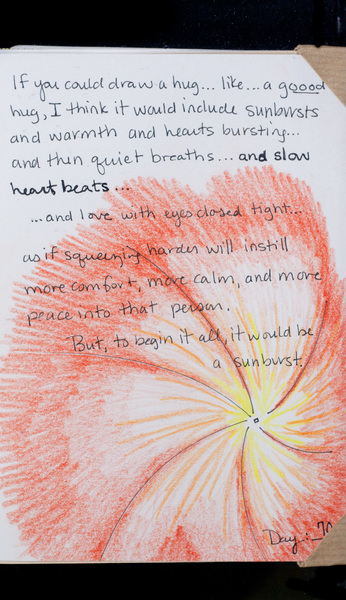 If you could draw a hug... like... a goood
hug, I think it would include sunbursts
and warmth and hearts bursting...
and then quiet breaths... and slow
heart beats...
...and love with eyes closed tight...
as if squeezing harder will instill
more comfort, more calm, and more
peace into that person.
But, to begin it all, it would be
a sunburst.
Day :